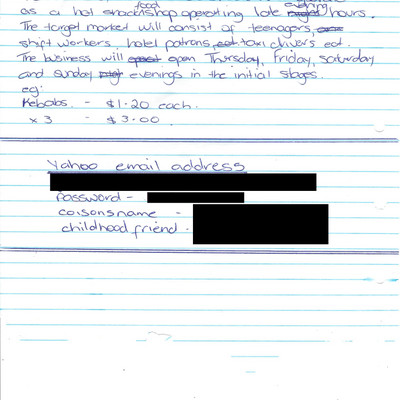 food
as a hot snack shop operating late hours.
The target market will consist of teenagers
shift workers, hotel patrons, taxi drivers ect.
The business will open Thursday, Friday, Saturday
and Sunday evenings in the initial stages.
eg:
Kebabs. - $1.20 each.
x 3 - $3.00.
Yahoo email address
Password -
coisons name -
childhood friend -